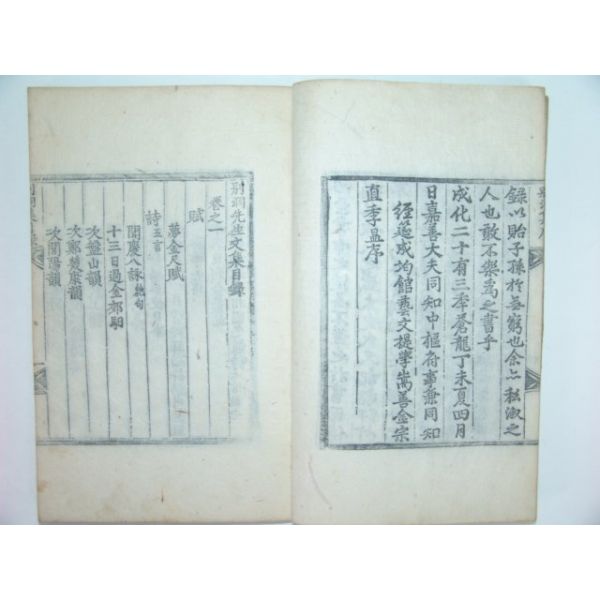 錄以貽子孫於無窮也余亦私淑之
人也敢不樂爲之書乎
成化二十有三季蒼龍丁未夏四月
日嘉善大夫同知中樞府事兼同知
經筵成均館藝文提學嵩善金宗
直季昷序
別洞先生文集目錄
卷之一
賦
夢金尺賦
詩五言
聞慶八詠絶句
十三日過金郊馹
次盤山韻
次郭韻
次閭陽韻